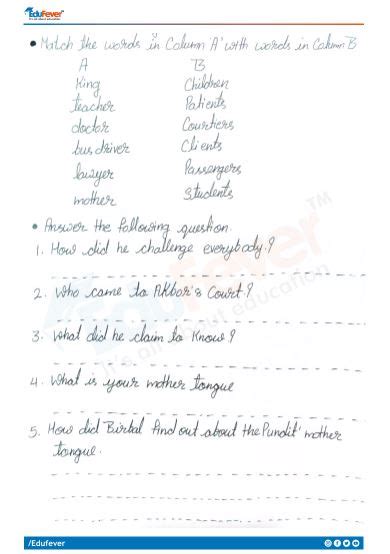 EduFever
It's all about education
• Match the words in Column 'A' with words in Column B
A B
King Children
teacher Patients
doctor Courtiers
bus driver Clients
lawyer Passengers
mother Students
• Answer the following question.
1. How did he challenge everybody?
2. Who came to Akbar's Court?
3. What did he claim to know?
4. What is your mother tongue
5. How did Birbal find out about the Pundit' mother
tongue.
EduFever TM
It's all about education
/Edufever